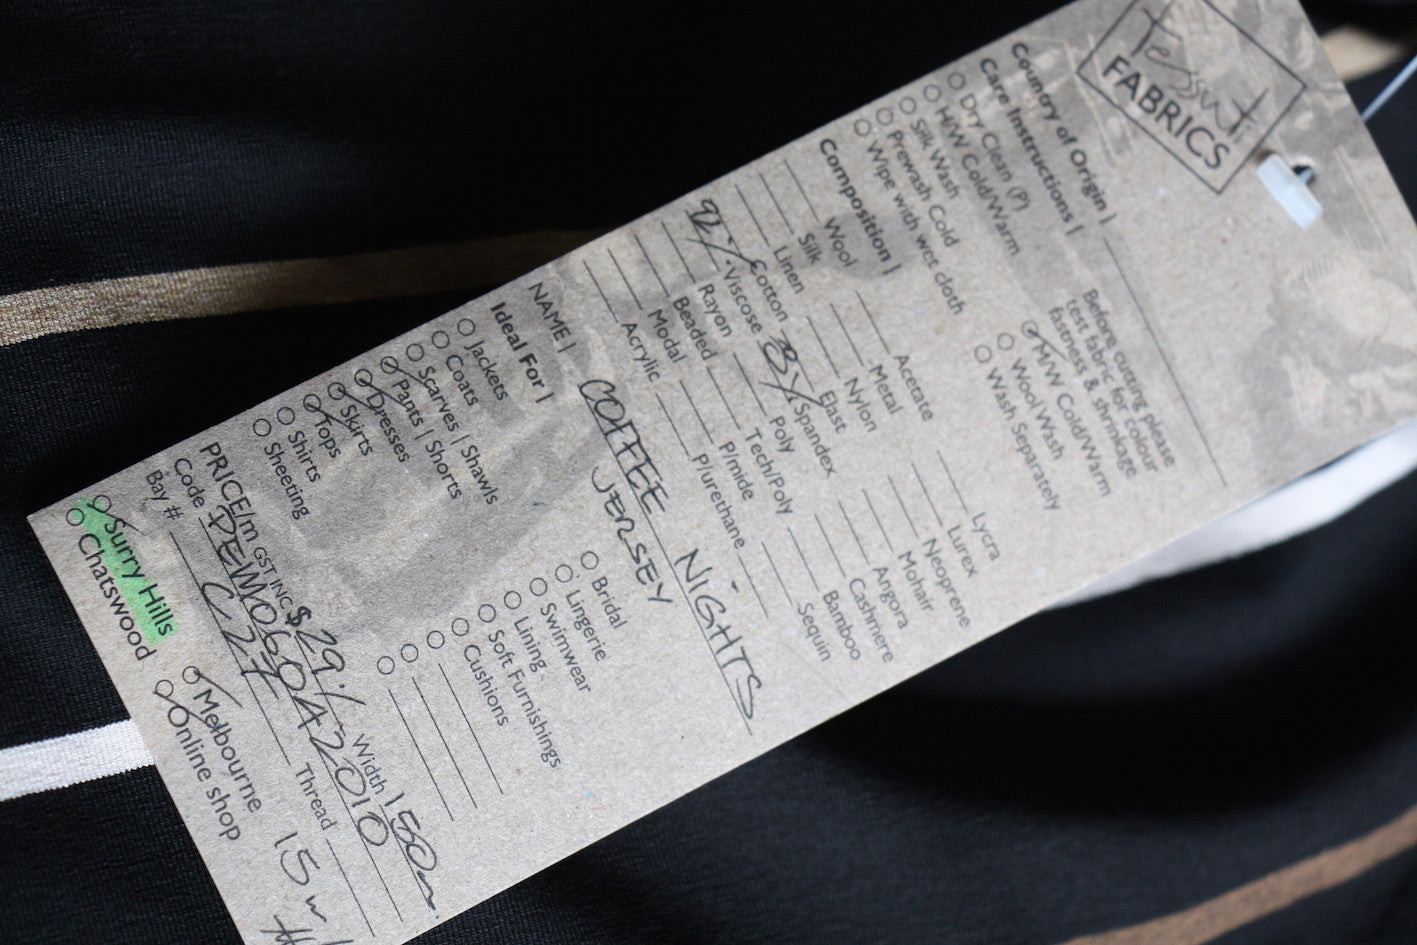 Tessuti
FABRICS
Country of Origin |
Care Instructions |
Dry Clean (P)
H/W Cold/Warm
Silk Wash
Prewash Cold
Wipe with wet cloth
Before cutting please
test fabric for colour
fastness & shrinkage
M/W Cold/Warm
Wool Wash
Wash Separately
Composition |
Wool Acetate Lycra
Silk Metal Lurex
Linen Nylon Neoprene
Cotton Elast Mohair
92% Viscose 8% Spandex Angora
Rayon Poly Cashmere
Beaded Tech/Poly Bamboo
Modal P/mide Sequin
Acrylic P/urethane
NAME | COFFEE NIGHTS
JERSEY
Ideal For |
Jackets Bridal
Coats Lingerie
Scarves | Shawls Swimwear
Pants | Shorts Lining
Dresses Soft Furnishings
Skirts Cushions
Tops
Shirts
Sheeting
PRICE/m GST INC $29./- Width 150cm
Code
Bay # C27F Thread
Surry Hills Melbourne 15m
Chatswood Online shop